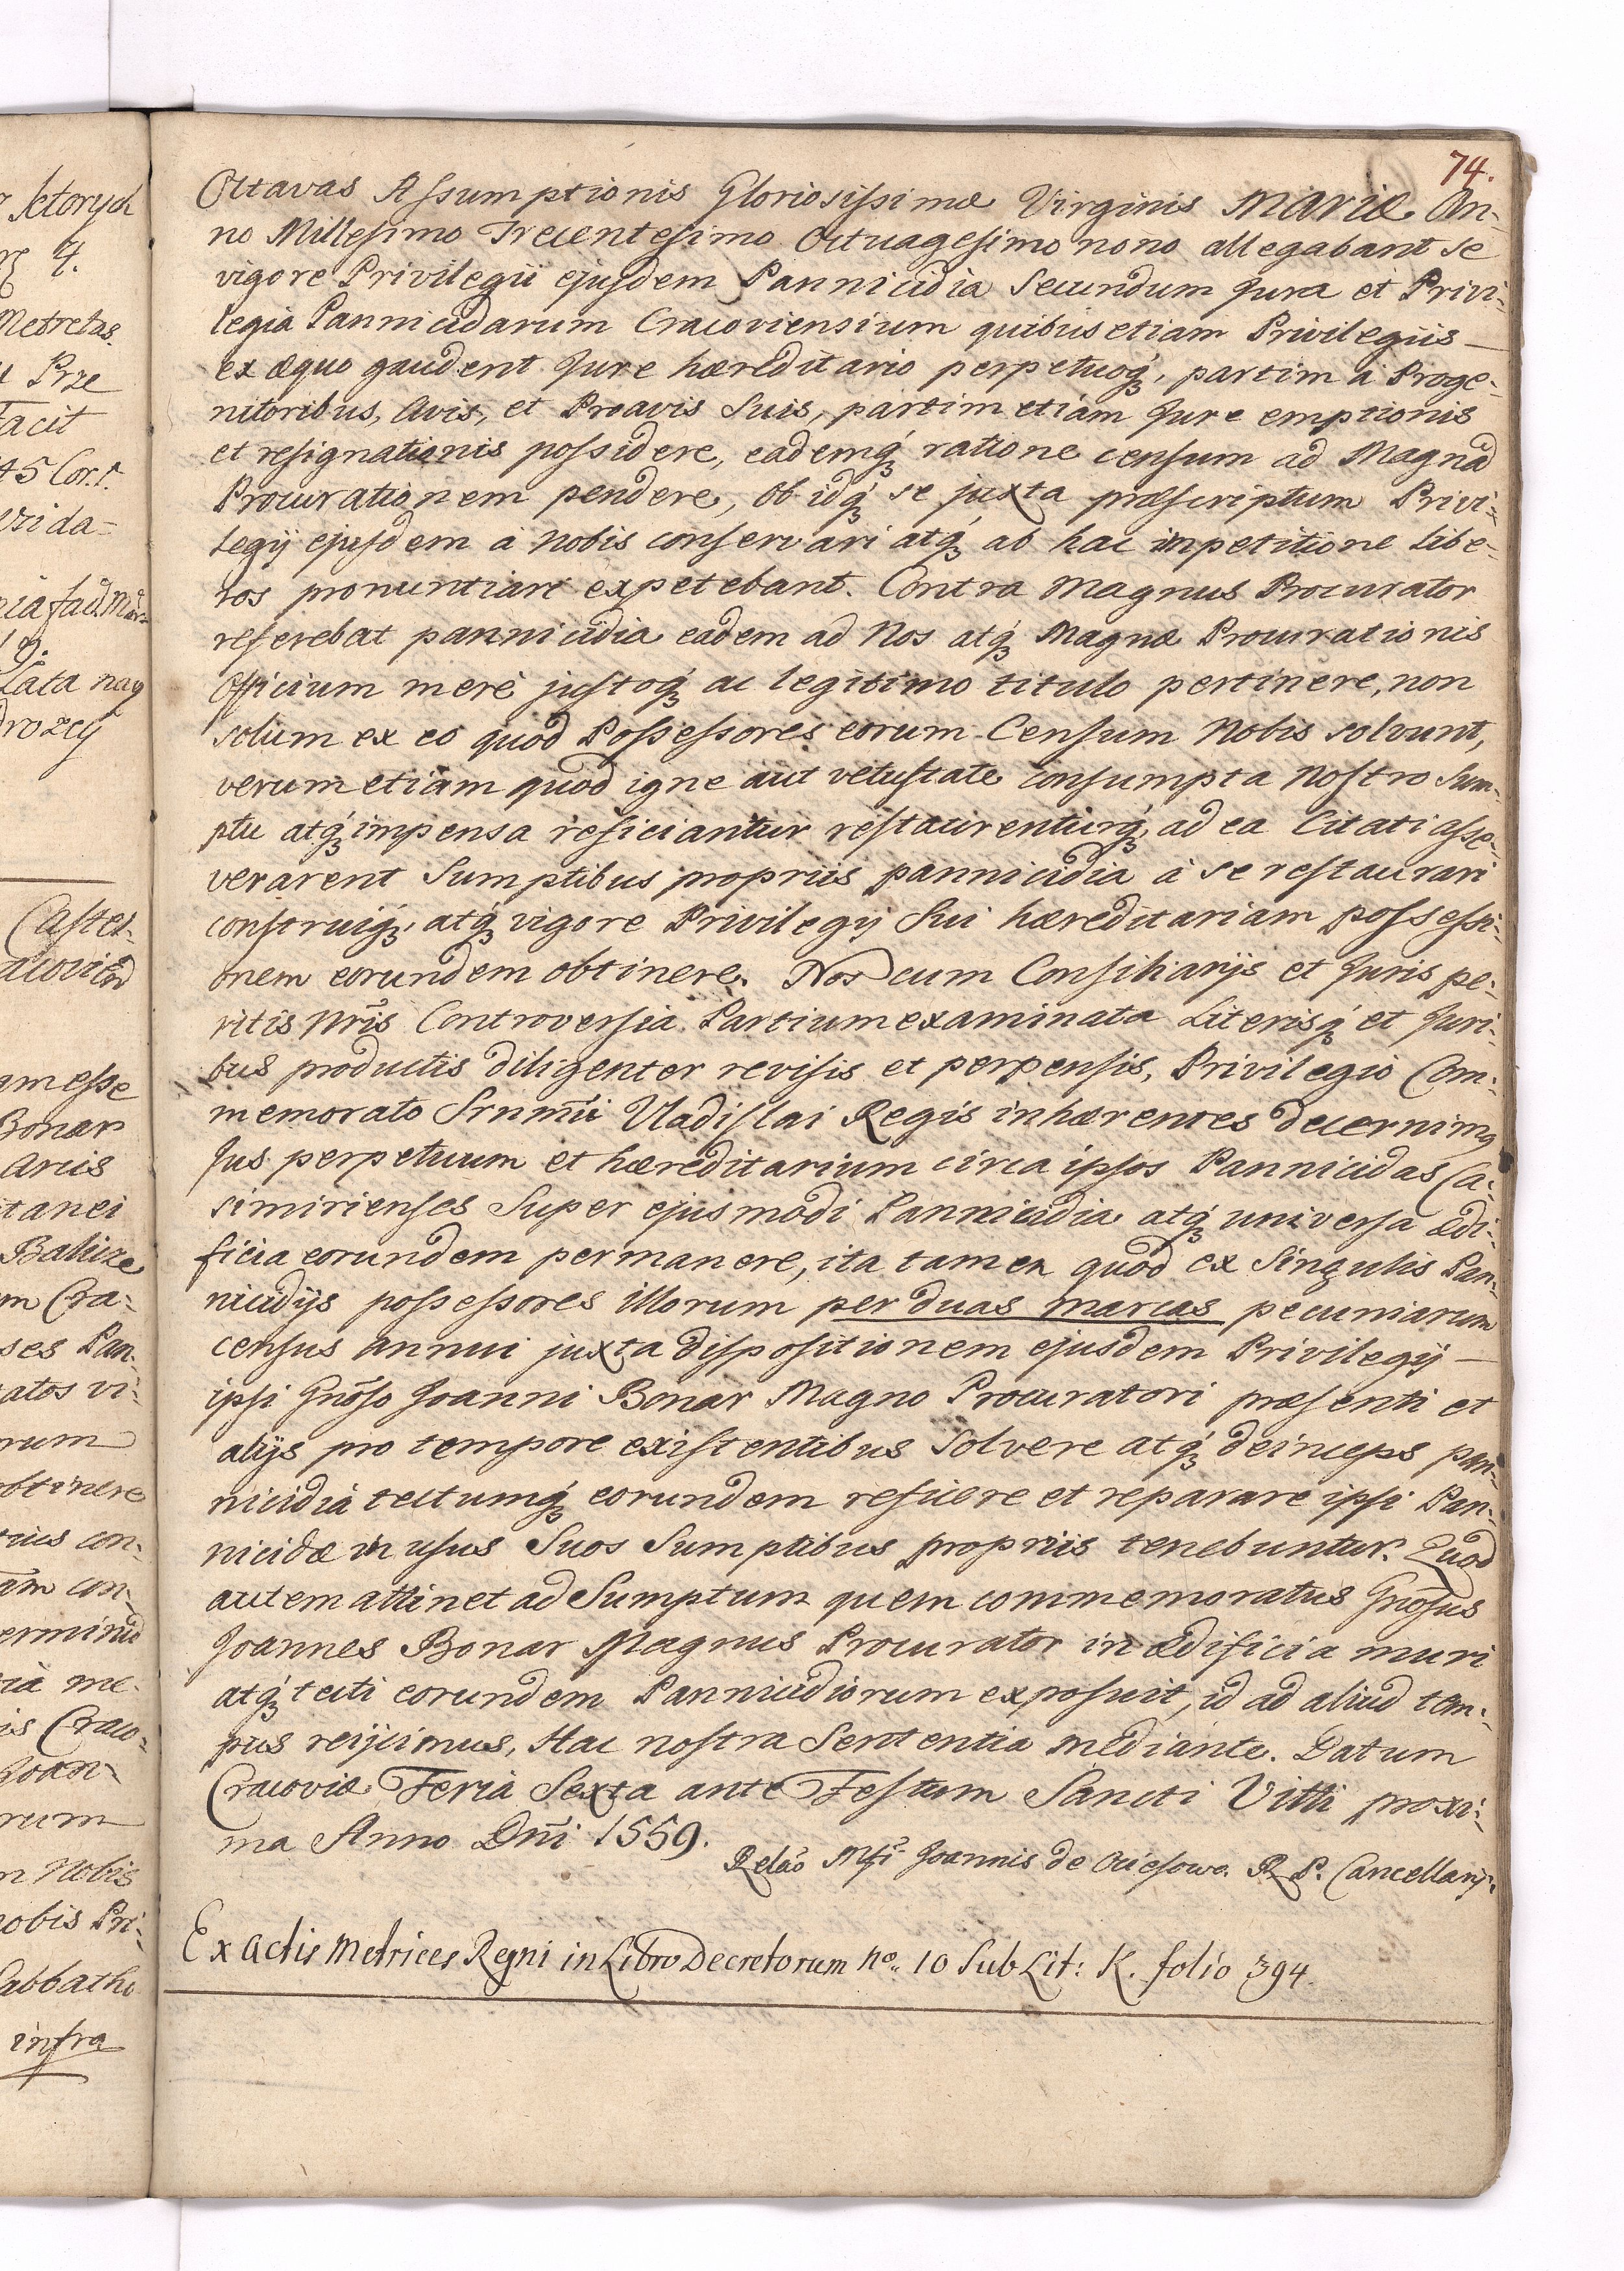 r ktorych
rz 4.
Metretas.
u Prze
facit
45 Cor. t.
vrida=
nia fad. Mar=
19.
Lata nay
drozey
Castel-
acovien
am esse
Bonar
Arcis
itanei
Balicze
m Cra-
ses Pan-
atos vi-
rum
obtinere
rius con-
am con-
erminu
ria me-
is Craco-
Joan-
rum
m Nobis
nobis Pri-
Sabbatho
infra
74.
Octavas Assumptionis Gloriosissimæ Virginis Mariæ An-
no Millesimo Trecentesimo Octuagesimo nono allegabant se
vigore Privilegii ejusdem Pannicidia Secundum Jura et Privi-
legia Pannicidarum Cracoviensium quibus etiam Privilegiis —
ex æquo gaudent Jure hæreditario perpetuoq́, partim à Proge-
nitoribus, Avis, et Proavis Suis, partim etiam Jure emptionis
et resignationis possidere, eademq́ ratione censum ad Magnā
Procurationem pendere, ob idq́ se juxta præscriptum Privi-
legij ejusdem à nobis conservari atq́ ab hac impetitione libe-
ros pronuntiari expetebant. Contra Magnus Procurator
referebat pannicidia eadem ad Nos atq́ Magnæ Procurationis
Officium merè justoq́ ac legitimo titulo pertinere, non
solum ex eo quod Possessores eorum Censum Nobis solvunt,
verum etiam quod igne aut vetustate consumpta Nostro Sum-
ptu atq́ impensa reficiantur restaurenturq́, ad ea Citati asse-
verarent Sumptibus propriis pannicidia à se restaurari
construiq́, atq́ vigore Privilegij Sui hæreditariam possessi-
onem eorundem obtinere. Nos cum Consiliarijs et Juris pe-
ritis Nr̄is Controversia Partium examinata Literisq́ et Juri-
bus productis diligenter revisis et perpensis, Privilegio Com-
memorato Srnmī Vladislai Regis inhærentes decernimq
Jus perpetuum et hæreditarium circa ipsos Pannicidas Ca-
simirienses Super ejusmodi Pannicidia atq́ universa Ædi-
ficia eorundem permanere, ita tamen quod ex Singulis Pan-
nicidijs possessores illorum per duas marcas pecuniarum
census annui juxta dispositionem ejusdem Privilegij —
ipsi Gnōso Joanni Bonar Magno Procuratori præsenti et
alijs pro tempore existentibus Solvere atq́ deinceps pan-
nicidia tectumq́ eorundem reficere et reparare ipsi Pan-
nicidæ in usus Suos Sumptibus propriis tenebuntur. Quod
autem attinet ad Sumptum quem commemoratus Gnōsus
Joannes Bonar Magnus Procurator in ædificia muri
atq́ tecti eorundem Pannicidiorum exposuit, id ad aliud tem-
pus reijcimus, Hac nostra Sententia mediante. Datum
Cracoviæ Feria Sexta ante Festum Sancti Vitti proxi-
ma Anno Dn̄i 1559.
Relāo Mfi. Joannis de Ociesowe R. P. Cancellarij.
Ex Actis Metrices Regni in Libro Decretorum No. 10 Sub Lit: K. folio 394.